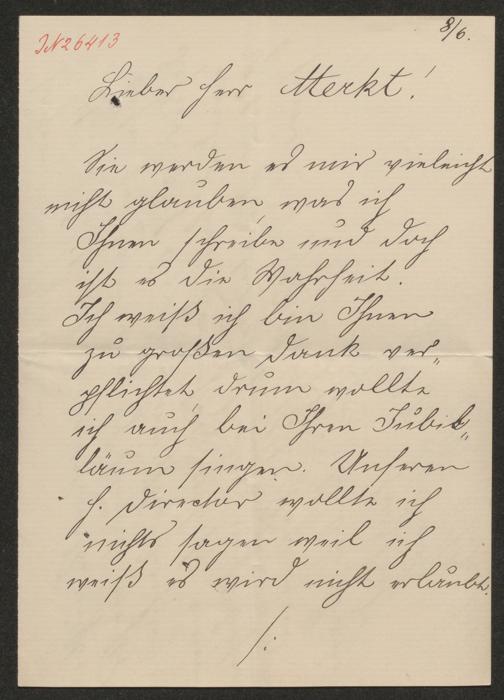 8/6.
JN 26413
Lieber Herr Merkt!
Sie werden es mir vieleicht
nicht glauben, was ich
Ihnen schreibe und doch
ist es die Wahrheit.
Ich weiß ich bin Ihnen
zu großen Dank ver„
pflichtet, drum wollte
ich auch bei Ihren Jubil„
läum singen. Unseren
H. Director wollte ich
nichts sagen weil ich
weiß es wird nicht erlaubt.
/: